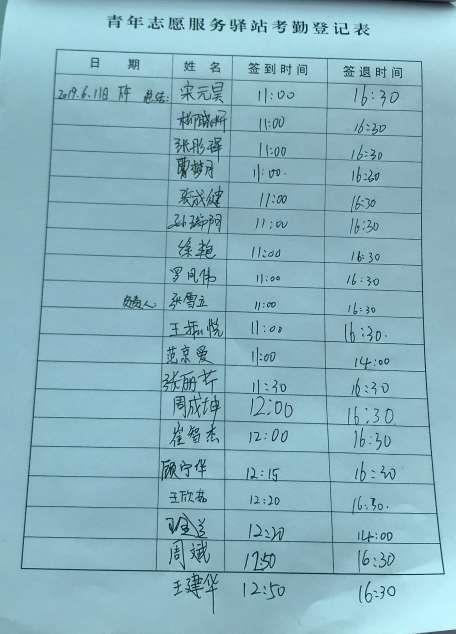 青年志愿服务驿站考勤登记表
日 期 姓 名 签到时间 签退时间
2019.6.11日 宋元昊 11:00 16:30
11:00 16:30
张彤禕 11:00 16:30
曹梦月 11:00. 16:30
张成健 11:00 16:30
11:00 16:30
徐艳 11:00 16:30
罗凤伟 11:00 16:30
负责人: 张雪立 11:00 16:30
王振悦 11:00 16:30.
范京爱 11:00 14:00
张丽芹 11:30 16:30
周成坤 12:00 16:30
崔智杰 12:00 16:30
顾宁华 12:15 16:30
王欣茹 12:20 16:30.
12:20 14:00
周斌 12:50 16:30
王建华 12:50 16:30